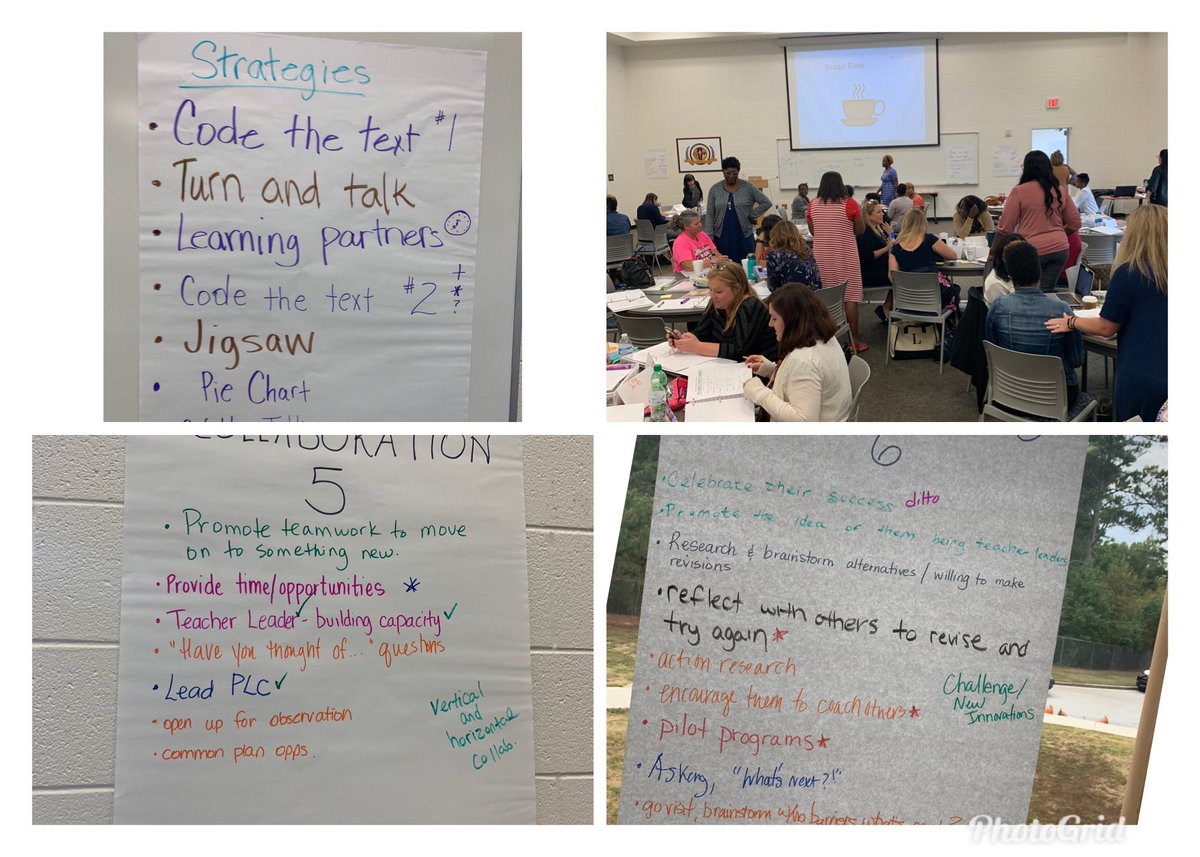 Strategies
• Code the text #1
• Turn and talk
• Learning partners
• Code the text #2 + * ?
• Jigsaw
• Pie Chart
Break Time
COLLABORATION
5
• Promote teamwork to move
on to something new.
• Provide time/opportunities *
• Teacher Leader ✓ - building capacity ✓
• "Have you thought of..." questions
• Lead PLC ✓
• open up for observation
• common plan opps.
Vertical
and
horizontal
Collab.
6
• Celebrate their success ditto
• Promote the idea of them being teacher leaders
• Research & brainstorm alternatives / willing to make
revisions
• reflect with others to revise and
try again *
• action research
• encourage them to coach others *
• pilot programs *
Challenge/
New
Innovations
• Asking, "What's next?!"
• go visit, brainstorm w/no barriers what's
PhotoGrid